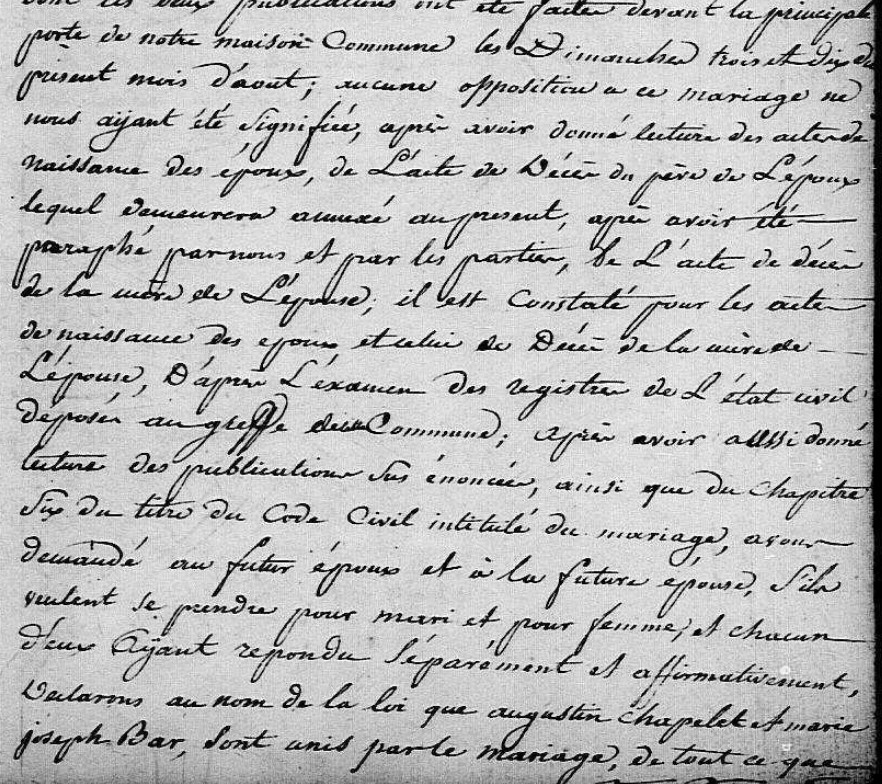 dont les deux publications ont été faites devant la principale
porte de notre maison Commune les Dimanches trois et dix du
présent mois d'aout; aucune opposition a ce mariage ne
nous aÿant été Signifiée, après avoir donné lecture des actes de
naissance des époux, de L'acte de Décès du père de L'époux
lequel demeurera annexé au present, après avoir été
paraphé par nous et par les parties, de L'acte de décès
de la mère de L'épouse; il est Constaté pour les actes
de naissance des epoux et celui de Décès de la mère de
L'épouse, D'après L'éxamen des registres de L'état civil
deposés au greffe de la Commune; après avoir aussi donné
lecture des publications Sus énoncées, ainsi que du chapitre
Six du titre du Code Civil intitulé du mariage, avons
demandé au futur époux et à la future epouse, S'ils
veulent se prendre pour mari et pour femme; et chacun
d'eux Aÿant repondu Séparément et affirmativement,
Declarons au nom de la loi que augustin chapelet et marie
joseph Bar, Sont unis par le mariage, de tout ce que